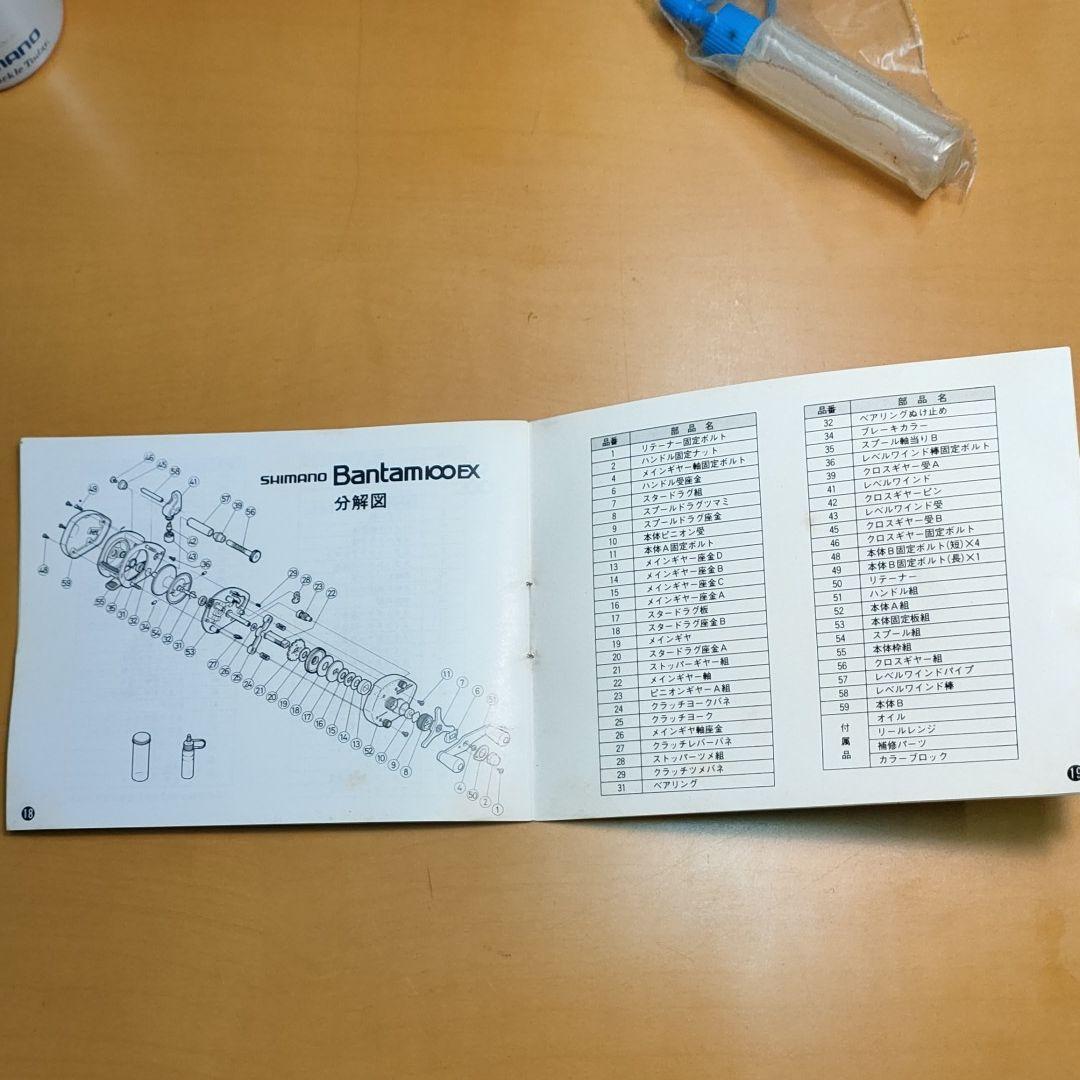 MANO
ckle Tuben
SHIMANO Bantam100EX
分解図
46 45 58 41
49
57 39 56
42
43 36
48 59
29 28 23 22
55 35 31 32 34 54 32 31 53
27 26 25 24 21 20 19 18 17 16 15 14 13 52 10 9 8
11 7 6 51
4 50 2 1
18
品番 部品名
1 リテーナー固定ボルト
2 ハンドル固定ナット
4 メインギヤー軸固定ボルト
6 ハンドル受座金
7 スタードラグ組
8 スプールドラグツマミ
9 スプールドラグ座金
10 本体ピニオン受
11 本体A固定ボルト
13 メインギヤー座金D
14 メインギヤー座金B
15 メインギヤー座金C
16 メインギヤー座金A
17 スタードラグ板
18 スタードラグ座金B
19 メインギヤ
20 スタードラグ座金A
21 ストッパーギヤー組
22 メインギヤー軸
23 ピニオンギヤーA組
24 クラッチヨークバネ
25 クラッチヨーク
26 メインギヤ軸座金
27 クラッチレバーバネ
28 ストッパーツメ組
29 クラッチツメバネ
31 ベアリング
品番 部品名
32 ベアリングぬけ止め
34 ブレーキカラー
35 スプール軸当りB
36 レベルワインド棒固定ボルト
39 クロスギヤー受A
41 レベルワインド
42 クロスギヤーピン
43 レベルワインド受
45 クロスギヤー受B
46 クロスギヤー固定ボルト
48 本体B固定ボルト(短)×4
49 本体B固定ボルト(長)×1
50 リテーナー
51 ハンドル組
52 本体A組
53 本体固定板組
54 スプール組
55 本体枠組
56 クロスギヤー組
57 レベルワインドパイプ
58 レベルワインド棒
59 本体B
付属品 オイル
リールレンジ
補修パーツ
カラーブロック
19